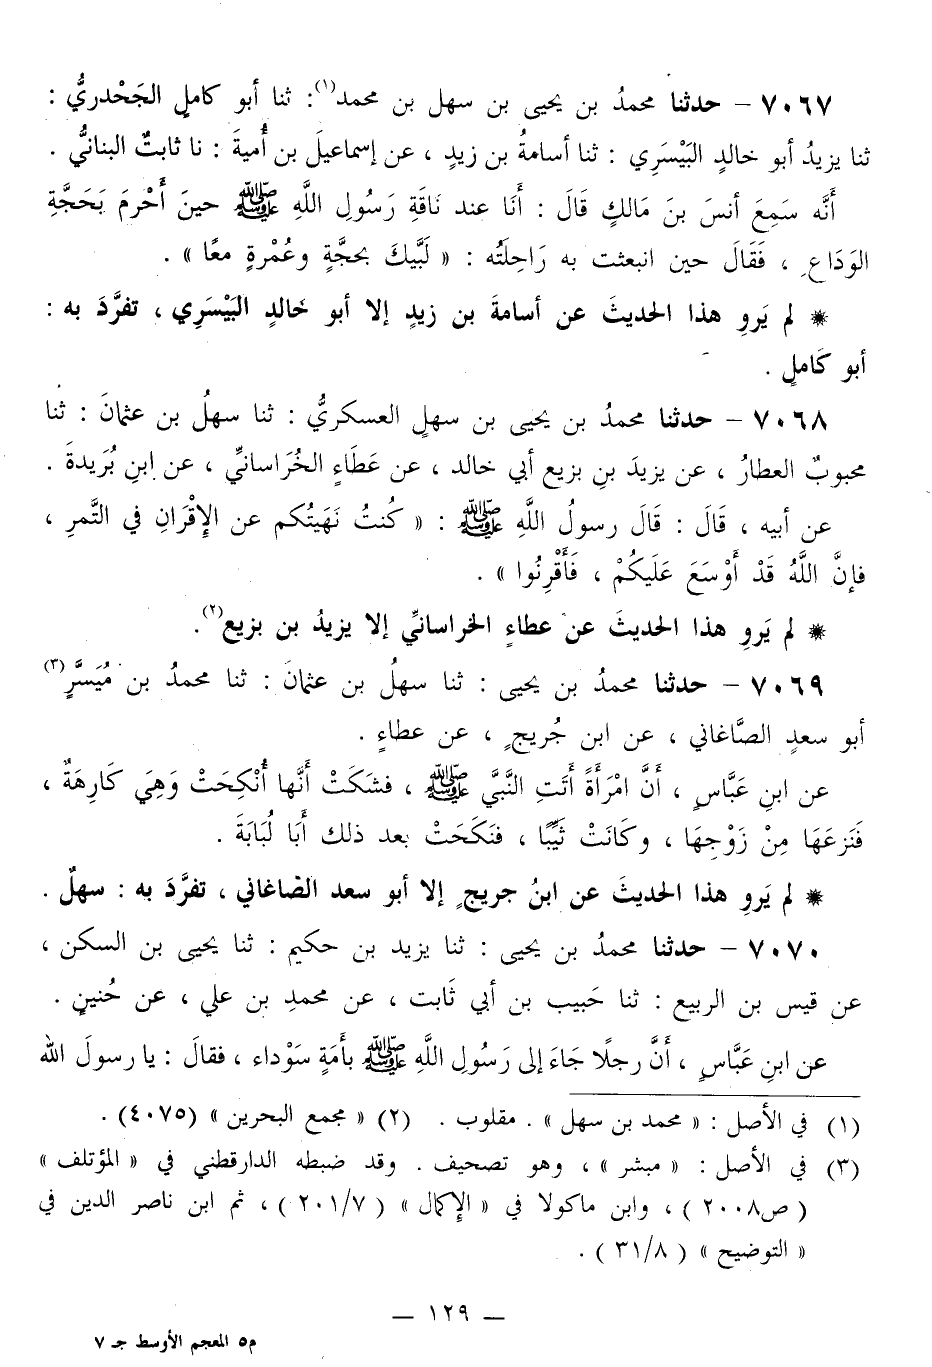 ٧٠٦٧ – حدثنا محمدُ بن يحيى بن سهل بن محمد(١): ثنا أبو كاملٍ الجَحْدريُّ :
ثنا يزيدُ أبو خالدٍ البَيْسَري : ثنا أسامةُ بن زيدٍ ، عن إسماعيلَ بن أُميةَ : نا ثابتٌ البنانيُّ .
أَنَّه سَمِعَ أنسَ بنَ مَالكٍ قَالَ : أَنَا عند نَاقَةِ رَسُولِ اللَّهِ ﷺ حينَ أَحْرمَ بَحَجَّةِ
الوَدَاعِ ، فَقَالَ حين انبعثت به رَاحِلَتُه : « لَبَّيكَ بحجَّةٍ وعُمْرةٍ معًا » .
* لم يَروِ هذا الحديثَ عن أسامةَ بن زيدٍ إلا أبو خالدٍ البَيْسَرِي ، تفرَّدَ به :
أبو كَاملٍ .
٧٠٦٨ – حدثنا محمدُ بن يحيى بن سهلٍ العسكريُّ : ثنا سهلُ بن عثمانَ : ثنا
محبوبٌ العطارُ ، عن يزيدَ بنِ بزيع أبي خالد ، عن عَطَاءٍ الخُرَاسانيِّ ، عن ابنِ بُرَيدةَ .
عن أبيه ، قَالَ : قَالَ رسولُ اللَّهِ ﷺ : « كُنتُ نَهَيتُكم عن الإِقْرَانِ في التَّمرِ ،
فإنَّ اللَّهُ قَدْ أَوْسَعَ عَلَيكُمْ ، فَأَقْرِنُوا » .
* لم يَروِ هذا الحديثَ عن عطاءٍ الخراسانيِّ إلا يزيدُ بن بزيع(٢).
٧٠٦٩ – حدثنا محمدُ بن يحيى : ثنا سهلُ بن عثمانَ : ثنا محمدُ بن مُيَسَّرٍ(٣)
أبو سعدٍ الصَّاغاني ، عن ابن جُريجٍ ، عن عطاءٍ .
عن ابنِ عَبَّاسٍ ، أَنَّ امْرَأَةً أَتَتِ النَّبيَّ ﷺ ، فشَكَتْ أَنَّها أُنْكِحَتْ وَهِيَ كَارِهَةٌ ،
فَنَزعَهَا مِنْ زَوْجِهَا ، وكَانَتْ ثَيِّبًا ، فنَكَحَتْ بعد ذلك أَبَا لُبَابَةَ .
* لم يَروِ هذا الحديثَ عن ابنُ جريجٍ إلا أبو سعد الصَّاغاني ، تفرَّدَ به : سهلٌ .
٧٠٧٠ – حدثنا محمدُ بن يحيى : ثنا يزيد بن حكيم : ثنا يحيى بن السكن ،
عن قيس بن الربيع : ثنا حَبيب بن أبي ثَابت ، عن محمدِ بن علي ، عن حُنينٍ .
عن ابنِ عَبَّاسٍ ، أَنَّ رجلًا جَاءَ إلى رَسُولِ اللَّهِ ﷺ بأَمَةٍ سَوْداء ، فقالَ : يا رسولَ الله
(١) في الأصل : « محمد بن سهل » . مقلوب . (٢) « مجمع البحرين » (٤٠٧٥) .
(٣) في الأصل : « مبشر » ، وهو تصحيف . وقد ضبطه الدارقطني في « المؤتلف »
( ص٢٠٠٨ ) ، وابن ماكولا في « الإكمال » ( ٢٠١/٧ ) ، ثم ابن ناصر الدين في
« التوضيح » ( ٣١/٨ ) .
— ١٢٩ —
م٥ المعجم الأوسط جـ ٧